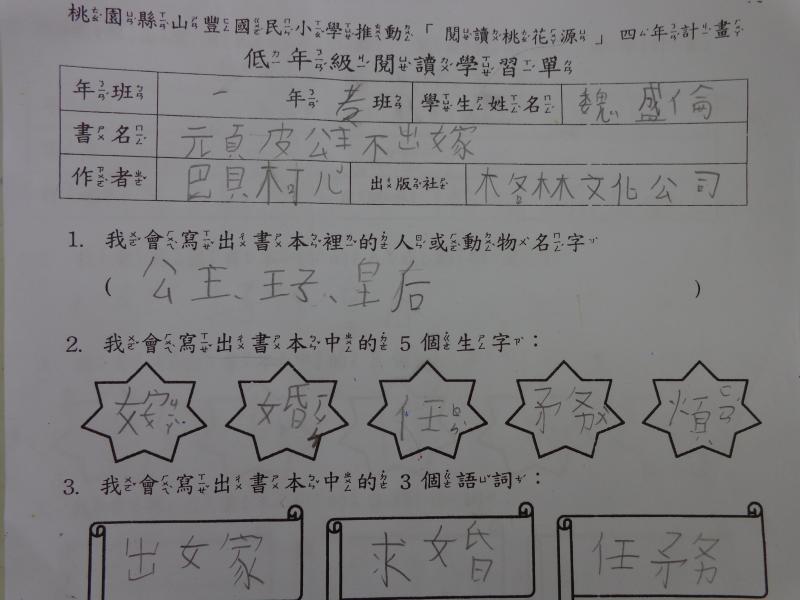 桃園縣山豐國民小學推動「閱讀桃花源」四年計畫
低年級閱讀學習單
年班 一年孝班 學生姓名 魏盛倫
書名 頑皮公主不出嫁
作者 巴貝柯爾 出版社 格林文化公司
1. 我會寫出書本裡的人或動物名字
( 公主、王子、皇后 )
2. 我會寫出書本中的 5 個生字：
嫁 婚 任 務 煩
3. 我會寫出書本中的 3 個語詞：
出嫁 求婚 任務